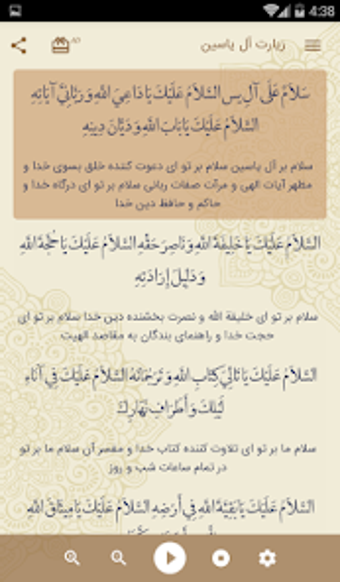 4:38
زیارت آل یاسین
سَلاَمٌ عَلَى آلِ يس السَّلاَمُ عَلَيْكَ يَا دَاعِيَ اللَّهِ وَ رَبَّانِيَّ آيَاتِهِ
السَّلاَمُ عَلَيْكَ يَا بَابَ اللَّهِ وَ دَيَّانَ دِينِهِ
سلام بر آل یاسین سلام بر تو ای دعوت کننده خلق بسوی خدا و
مظهر آیات الهی و مرآت صفات ربانی سلام بر تو ای درگاه خدا و
حاکم و حافظ دین خدا
السَّلاَمُ عَلَيْكَ يَا خَلِيفَةَ اللَّهِ وَ نَاصِرَ حَقِّهِ السَّلاَمُ عَلَيْكَ يَا حُجَّةَ اللَّهِ
وَ دَلِيلَ إِرَادَتِهِ
سلام بر تو ای خلیفة الله و نصرت بخشنده دین خدا سلام بر تو ای
حجت خدا و راهنمای بندگان به مقاصد الهیت
السَّلاَمُ عَلَيْكَ يَا تَالِيَ كِتَابِ اللَّهِ وَ تَرْجُمَانَهُ السَّلاَمُ عَلَيْكَ فِي آنَاءِ
لَيْلِكَ وَ أَطْرَافِ نَهَارِكَ
سلام ما بر تو ای تلاوت کننده کتاب خدا و مفسر آن سلام ما بر تو
در تمام ساعات شب و روز
السَّلاَمُ عَلَيْكَ يَا بَقِيَّةَ اللَّهِ فِي أَرْضِهِ السَّلاَمُ عَلَيْكَ يَا مِيثَاقَ اللَّهِ